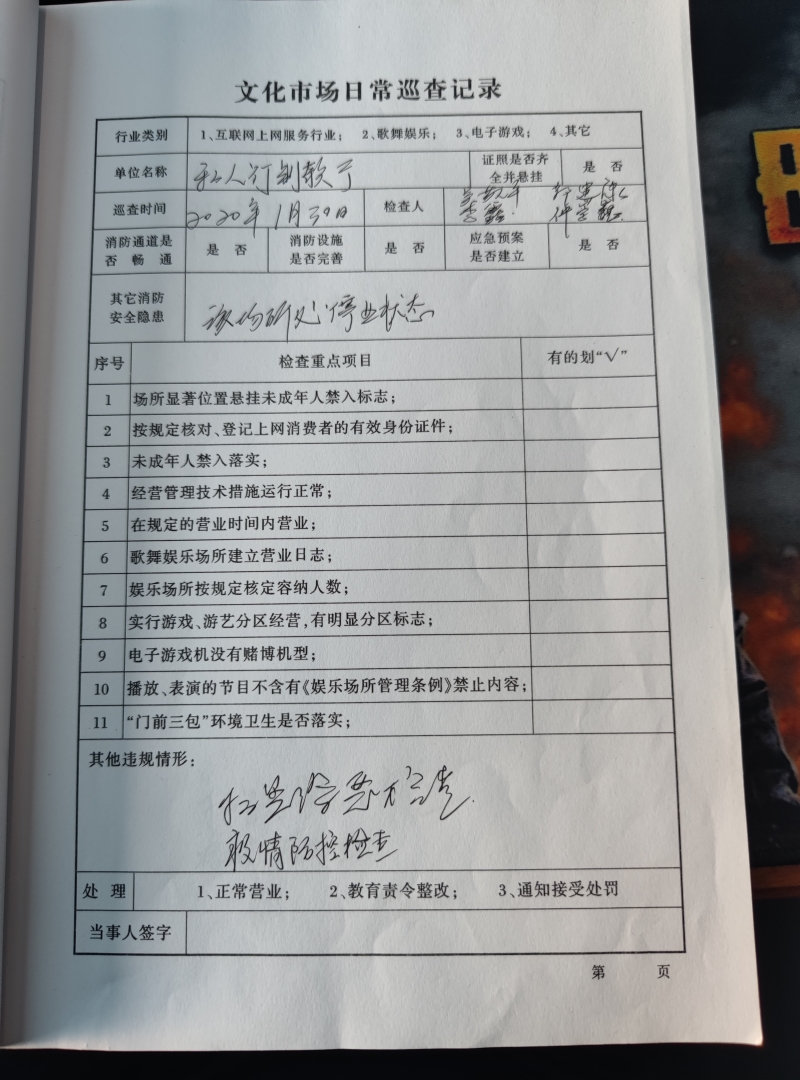 文化市场日常巡查记录
行业类别 1、互联网上网服务行业; 2、歌舞娱乐; 3、电子游戏; 4、其它
单位名称 私人订制歌厅 证照是否齐全并悬挂 是 否
巡查时间 2020年1月30日 检查人
消防通道是否畅通 是 否 消防设施是否完善 是 否 应急预案是否建立 是 否
其它消防安全隐患 该场所处停业状态
序号 检查重点项目 有的划“√”
1 场所显著位置悬挂未成年人禁入标志;
2 按规定核对、登记上网消费者的有效身份证件;
3 未成年人禁入落实;
4 经营管理技术措施运行正常;
5 在规定的营业时间内营业;
6 歌舞娱乐场所建立营业日志;
7 娱乐场所按规定核定容纳人数;
8 实行游戏、游艺分区经营,有明显分区标志;
9 电子游戏机没有赌博机型;
10 播放、表演的节目不含有《娱乐场所管理条例》禁止内容;
11 “门前三包”环境卫生是否落实;
其他违规情形:
疫情防控检查
处理 1、正常营业; 2、教育责令整改; 3、通知接受处罚
当事人签字
第 页